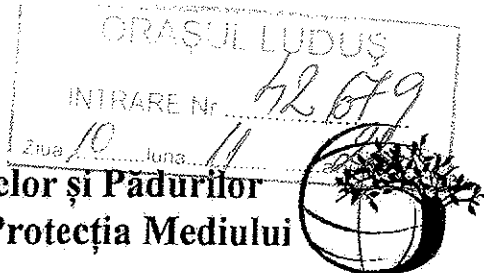 ORAȘUL LUDUȘ
INTRARE Nr. 42679
Ziua 10 luna 11
elor și Pădurilor
Protecția Mediului